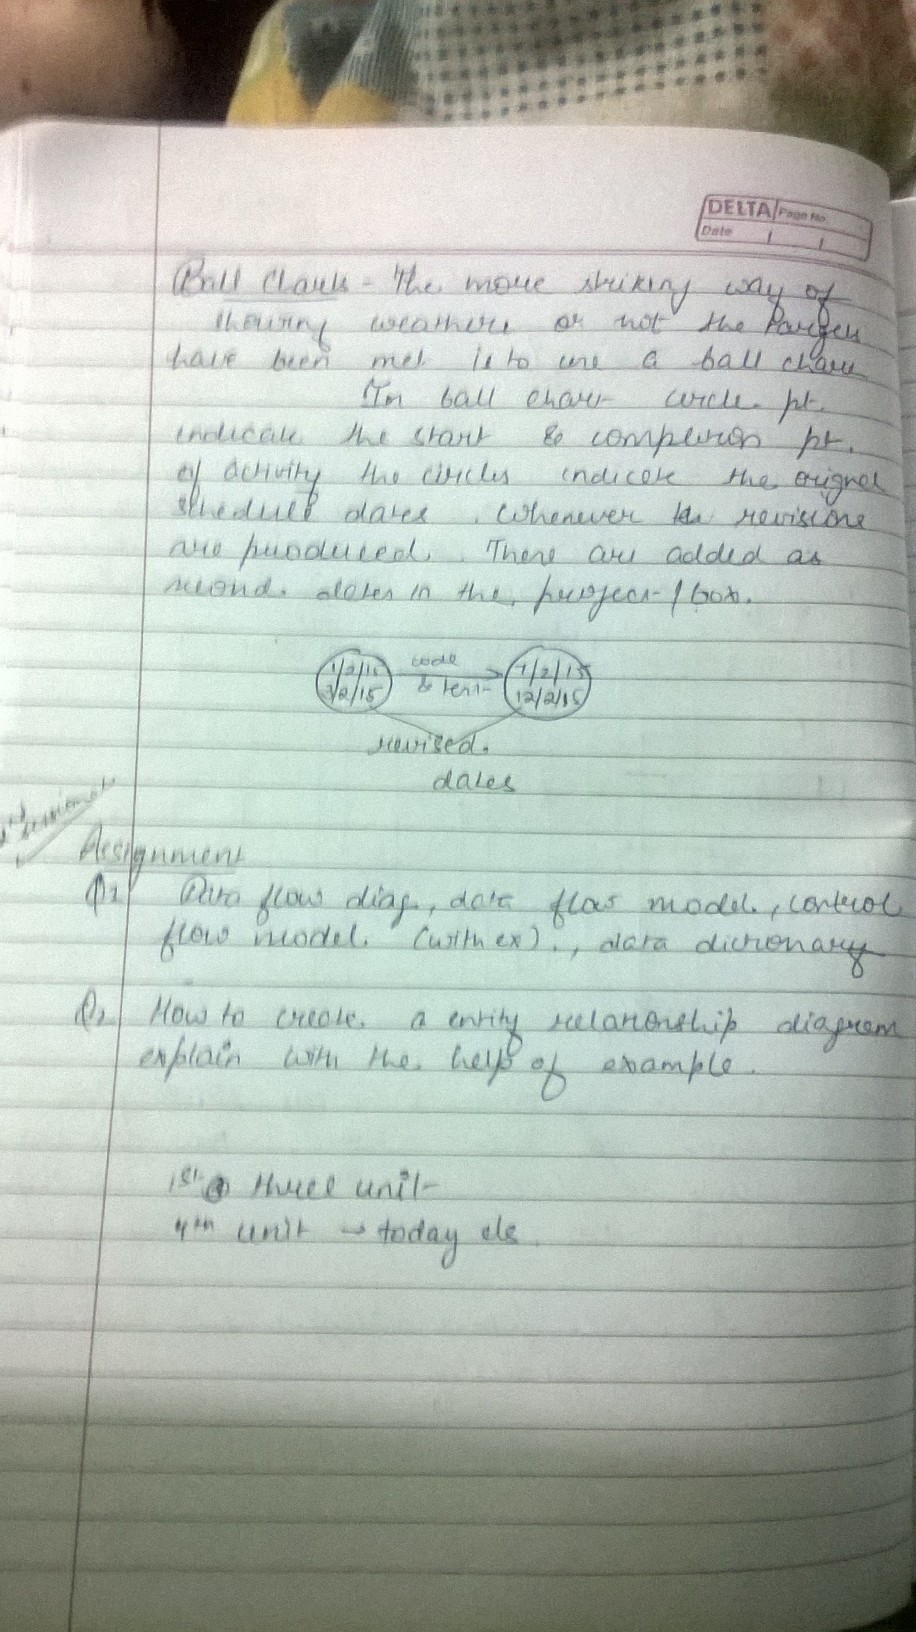 DELTA Page No.
Date / /
Ball Charts - The more striking way of
showing weathers or not the targets
have been met is to use a ball chart
In ball chart circle pt.
indicate the start & completion pt.
of activity the circles indicate the orignal
schedule dates . Whenever the revisions
are produced. There are added as
second. dates in the, project / box.
code
1/2/15 1/2/15
& test
3/2/15 12/2/15
revised.
dates
sessional
Assignment
Q1 Data flow diag., data flow model., control
flow model. (with ex)., data dictionary
Q2 How to create. a entity relationship diagram
explain with the help of example.
1st three unit
4th unit → today